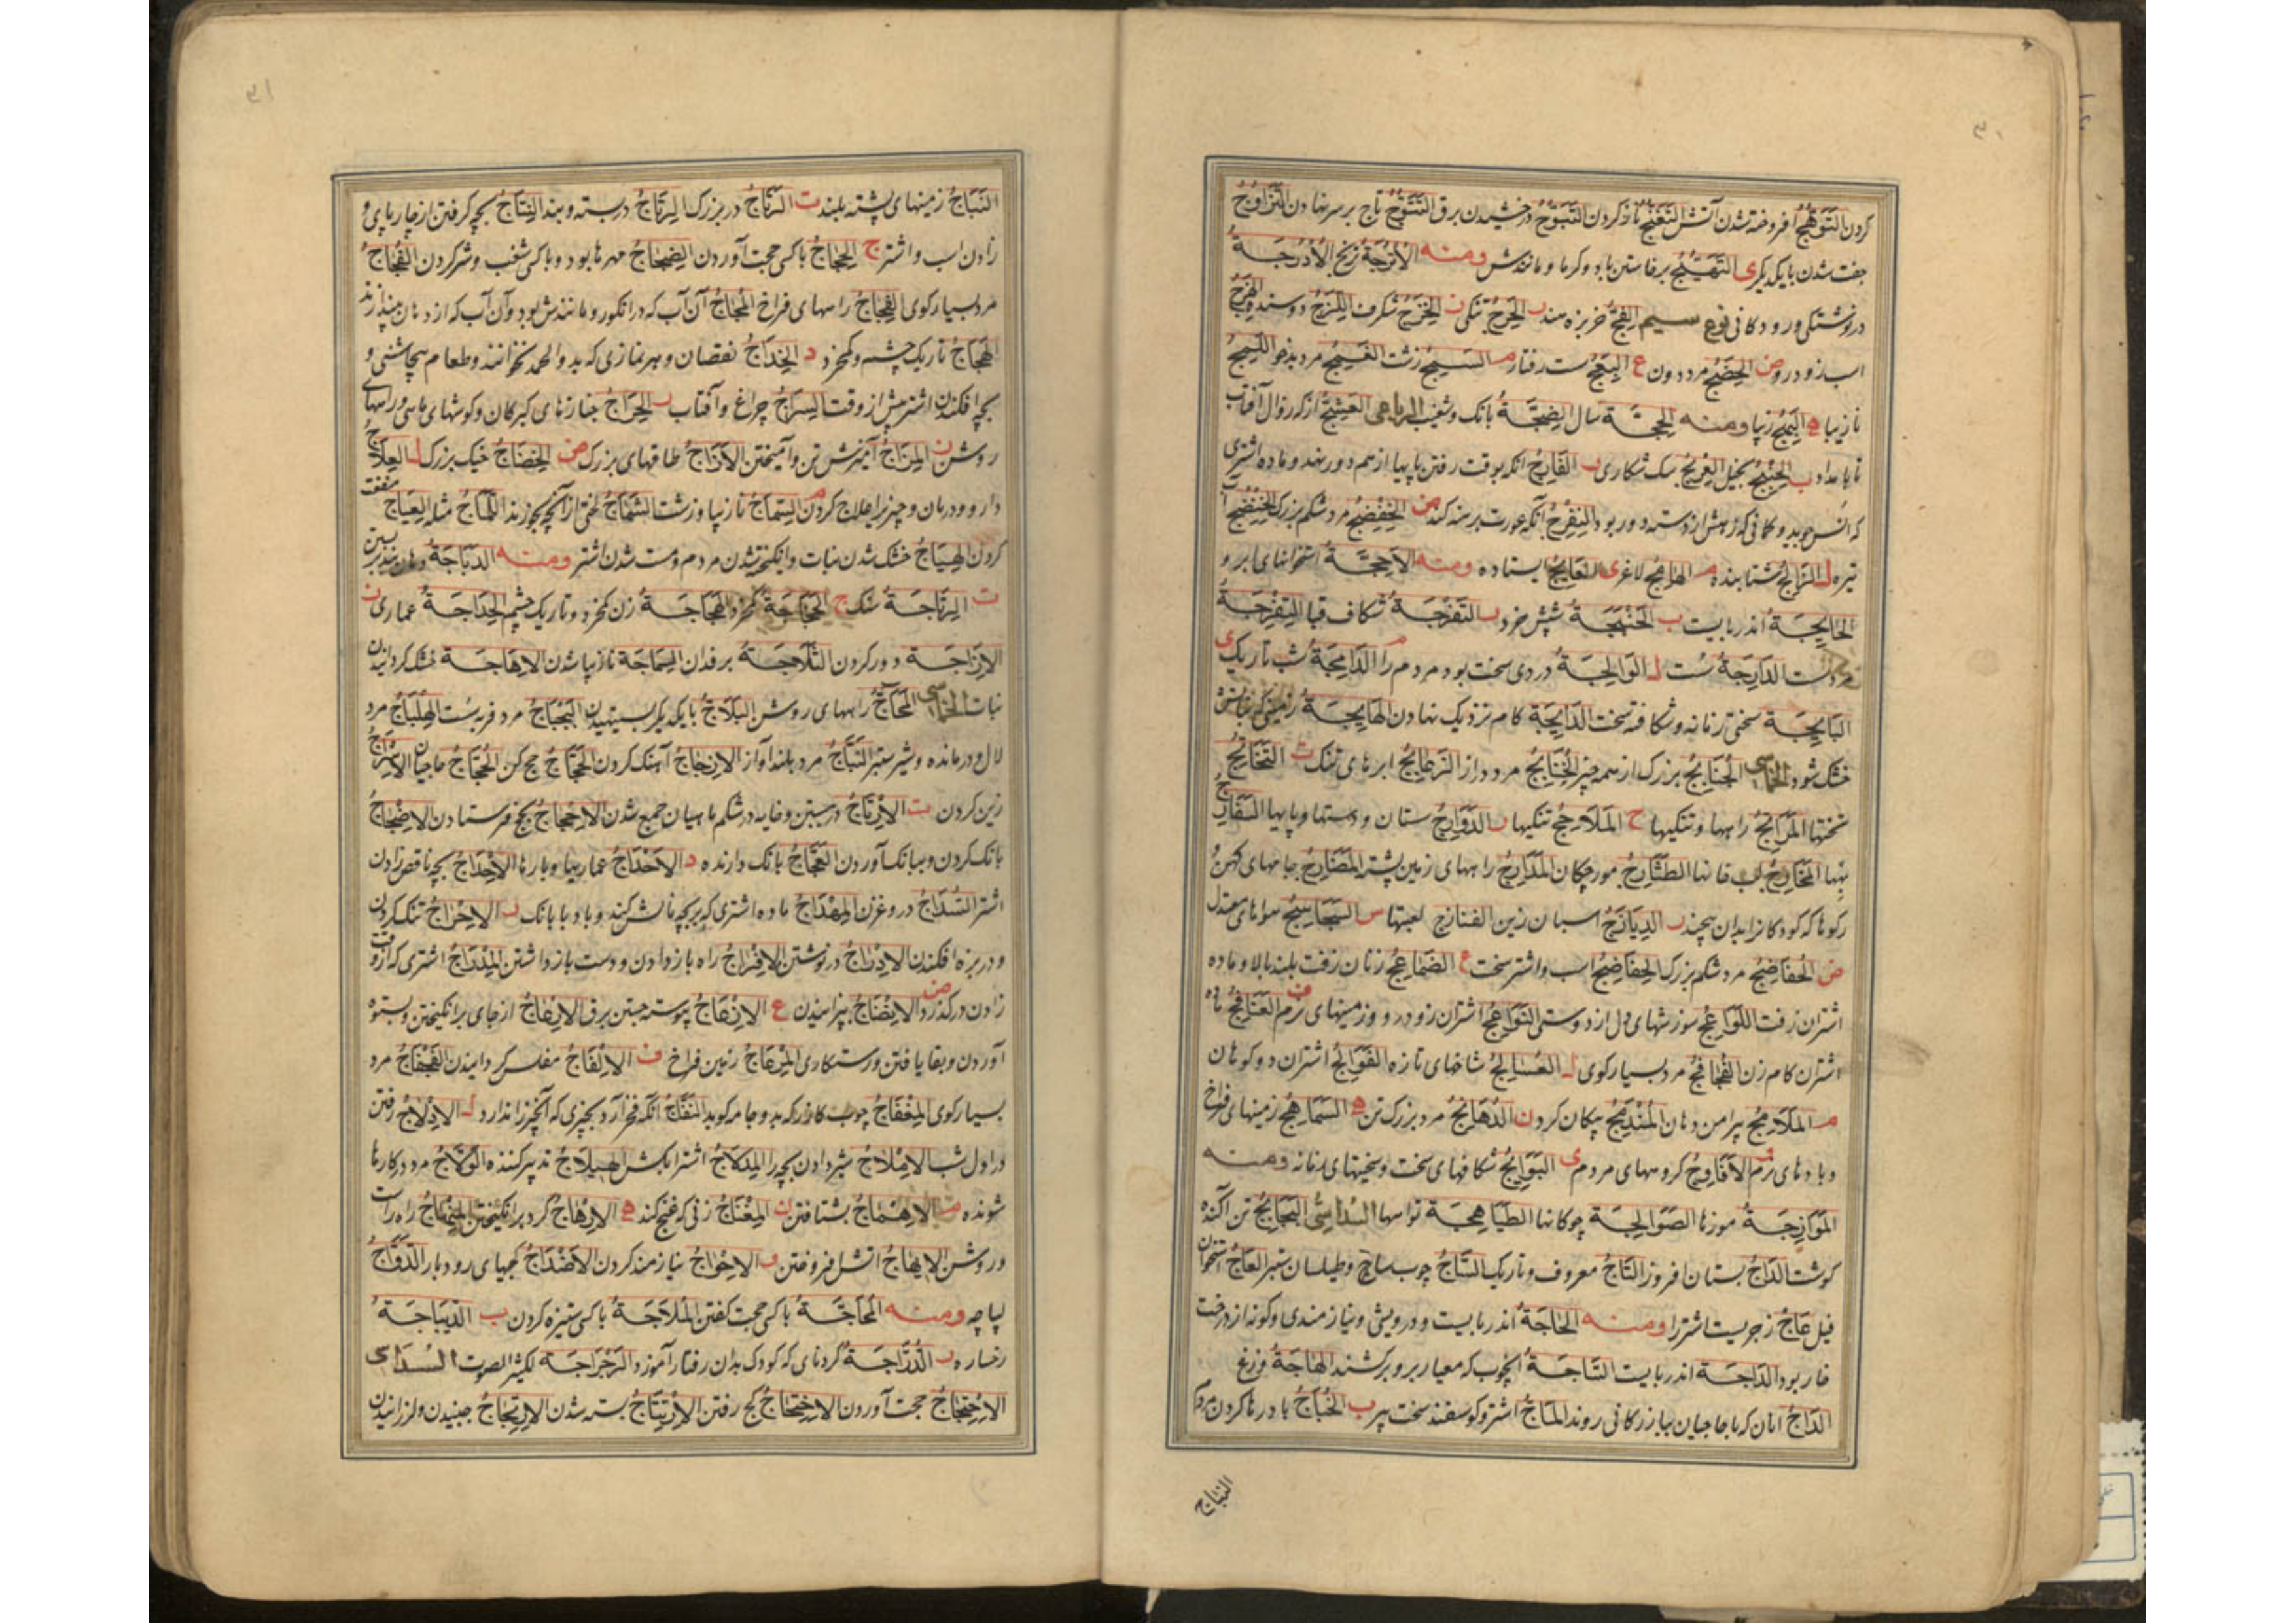 ۳۰
کردن التَوَهُّجُ افروخته شدن آتش التَغَنُّجُ ناز کردن التَبَوُّجُ درخشیدن برق التَتَوُّجُ تاج بر سر نهادن التَزَاوُجُ
جفت شدن با یکدیگر ی التَهَیُّجُ برخاستن باد و کرما و مانندش ومنه الاُترُجَةُ ترنج الاُدرُجَـةُ
در نوشتنکی و رودکانی نوع سیم الفِجُّ خربزه هند ر الحَرِجُ تنکی ز الخَزرَجُ شکرف اللَزِجُ دوسنده الهَزِجُ
اسب زودرو ض الحِضَجُ مرد دون ع البَعِجُ سست رفتار م السَمِجُ زشت الغَمِجُ مرد بدخو اللَمِجُ
نازیبا ه البَهِجُ زیبا ومنه الحِجَّـةُ سال الضَجَّـةُ بانک و شغب الرباعی العَشَنَّجُ از که زوال آفتاب
تا بامداد ب الخُنبُجُ بخیل العُریجُ سک شکاری ر الفَارِجُ انکه بوقت رفتن پایها از هم دور نهد و ماده اشتری
که انس جوید و کمانی که زهش از دسته دور بود المُفرِجُ آنکه عورت برهنه کند ض الحِفضَجُ مرد شکم بزرک الخِضَجُ آب
تیره ل الزَالِجُ شتابنده م الهَامِجُ لاغر ی العَایِجُ ایستاده ومنه الاَحِجَّـةُ استخوانهای ابرو
الحَایِجَـةُ اندربایست ب الخُنبُجَـةُ شپش خرد ر التَفرِجَـةُ شکاف قبا التِفرِجَـةُ
مردست الدَارِجَةُ سست ل الوَالِجَـةُ دردی سخت بود مردم را الدَامِجَةُ شب تاریک ی
البَایِجَـةُ سختی زمانه و شکافته سخت الدَایِجَةُ کام نزدیک نهادن الهَایِجَـةُ زمینی که نباتش
خشک شود الخماسی الجُنَابِجُ بزرک از همه چیز الخُنَابِجُ مرد دراز الزَطَابِجُ ابرهای تنک ت التَخَاتِجُ
تختها المَرَاتِجُ راهها و تنکیها ح المَلَاحِجُ تنکیها ر الدَوَارِجُ ستان و دستها و پایها السَفَارِجُ
بهها المَخَارِجُ لب خانها الطَثَارِجُ مورچکان المَدَارِجُ راههای زمین پشته المَضَارِجُ جامهای کهن و
رکوها که کودکانرا بدان پیچند ز الدِیَازَجُ اسبان زین الفنازج لعبتها س السَجَاسِجُ هواهای معتدل
ض الحُفَاضِجُ مرد شکم بزرک الحِفَاضِجُ اسب و اشتر سخت ع الضَمَاعِجُ زنان زفت بلند بالا و ماده
اشتران زفت اللَوَاعِجُ سوزشهای دل از دوستی النَوَاعِجُ اشتران زودرو و زمینهای نرم ف العَنَافِجُ ماده
اشتران کام زن الفُجَافِجُ مرد بسیار کوی ل العَسَالِجُ شاخهای تازه الفَوَالِجُ اشتران دو کوهان
م المَلَامِجُ پیرامن دهان المُندَمِجُ پیکان کردن ن الدُهَانِجُ مرد بزرک تن ه السَمَاهِجُ زمینهای فراخ
و بادهای نرم و الاَفَاوِجُ کروههای مردم ی البَوَایِجُ شکافهای سخت و سختیهای زمانه ومنه
المَوَازِجَـةُ موزها الصَوَالِجَـةُ چوکانها الطَیَاهِجَـةُ تواسها السداسی البَجَابِجُ تن آکنده
کوشت الدَاجُ بستان افروز التَاجُ معروف و تاریک السَاجُ چوب ساج و طیلسان ستبر العَاجُ استخوان
فیل عَاجُ زجریست اشترا ومنه الحَاجَةُ اندربایست و درویشی و نیازمندی و کونه از درخت
خار بود الدَاجَـةُ اندربایست السَاجَـةُ انچوب که معیار برو برکشند الهَاجَةُ وزغ
الدَاجُ انان که با حاجیان ببازرکانی روند المَاجُ اشتر و کوسفند سخت پیر ب الخُبَاجُ باد رها کردن مردم
النباج
۳۱
النَبَاجُ زمینهای پشته بلند ت الرَتَاجُ در بزرک الرِتَاجُ در بسته و بند النِتَاجُ بچه کرفتن از چارپای و
زادن اسب و اشتر ج الحِجَاجُ با کسی حجت آوردن الضِجَاجُ مهرها بود و با کسی شغب و شر کردن الفُجَاجُ
مرد بسیار کوی الفِجَاجُ راههای فراخ المُجَاجُ آن آب که در انکور و مانندش بود و آن آب که از دهان بیندازند
الهَجَاجُ تاریک چشم و کم خرد د الخِدَاجُ نقصان و هر نمازی که بدو الحمد نخوانند و طعام بی چاشنی و
بچه افکندن اشتر پیش از وقت السِرَاجُ چراغ و آفتاب ر الحِرَاجُ جنازهای کبرکان و کوشهای ماسی و راههای
روشن ز المِزَاجُ آمیزش تن و آمیختن الاَزَاجُ طاقهای بزرک ض الحِضَاجُ خیک بزرک ل العِلَاجُ
دارو و درمان و چیزیرا علاج کردن م السِمَاجُ نازیبا و زشت الشَمَاجُ لختی از آنچه بخورند اللَمَاجُ مثله العِیَاجُ منفعت
کردن الهِیَاجُ خشک شدن نبات و انکیخته شدن مردم و مست شدن اشتر ومنه الدَبَاجَةُ دهان بند پر بستن
ت الرِتَاجَـةُ سنک ج الحَجَاجَـةُ کم خرد الهَجَاجَـةُ زن کم خرد و تاریک چشم الحِدَاجَـةُ عماری ز
الاِزَاجَـةُ دور کردن الثَلَاجَـةُ برفدان السَمَاجَة نازیبا شدن الاِهَاجَـة خشک کردانیدن
نبات الخماسی المَحَاجُّ راههای روشن البِلَاجُ با یکدیکر بستیهیدن البَجبَاجُ مرد فربه سست الهِلبَاجُ مرد
لال و درمانده و شیر ستبر النَبَاجُ مرد بلند آواز الاِنِجَاجُ آهنک کردن الحَجَّاجُ حج کن الحُجَّاجُ حاجیان الاِسرَاجُ
زین کردن ت الاِرتَاجُ در بستن و خایه در شکم ماهیان جمع شدن الاِحجَاجُ بحج فرستادن الاِضجَاجُ
بانک کردن و ببانک آوردن العَجَّاجُ بانک دارنده د الاَحدَاجُ عماریها و بارها الاِخدَاجُ بچه ناقص زادن
اشتر السَدَّاجُ دروغ زن المِهدَاجُ ماده اشتری که بر بچه نالش کند و باد با بانک ر الاِحرَاجُ تنک کردن
و در بزه افکندن الاِدرَاجُ درنوشتن الاِفرَاجُ راه باز دادن و دست باز داشتن المِدرَاجُ اشتری که از وقت
زادن درکذرد ض الاِنضَاجُ پزانیدن ع الاِرعَاجُ پیوسته جستن برق الاِزعَاجُ از جای برانکیختن و بستوه
آوردن و بقا یافتن و رستکاری المِزعَاجُ زمین فراخ ف الاِلفَاجُ مفلس کردانیدن الفَجفَاجُ مرد
بسیار کوی المِعفَاجُ چوب کازر که بدو جامه کوبد النَفَّاجُ انکه فخر آرد بچیزی که آنچیز ندارد ل الاِدلَاجُ رفتن
در اول شب الاِملَاجُ شیر دادن بچه را المِدلَاجُ اشتر آبکش الهَیلَاجُ تدبیر کننده الوَلَّاجُ مرد در کارها
شونده م الاِهمَاجُ بشتافتن ن المِغنَاجُ زنی که غنج کند ه الاِرهَاجُ کرد برانکیختن المِنهَاجُ راه راست
و روشن الاِیهَاجُ آتش افروختن و الاِحوَاجُ نیازمند کردن الاَضوَاجُ کجهای رودبار الدَوَّاجُ
لباچه ومنه المُحَاجَّـةُ با کسی حجت کفتن المُلَاجَّـةُ با کسی ستیزه کردن ب الدِیبَاجَـةُ
رخساره ر الدُرَّاجَـةُ کردنای که کودک بدان رفتار آموزد الرَجرَاجَـةُ لکثیر الصوت السداسی
الاِحتِجَاجُ حجت آوردن الاِختِجَاجُ کج رفتن الاِرتِتَاجُ بسته شدن الاِرتِجَاجُ جنبیدن و لرزانیدن